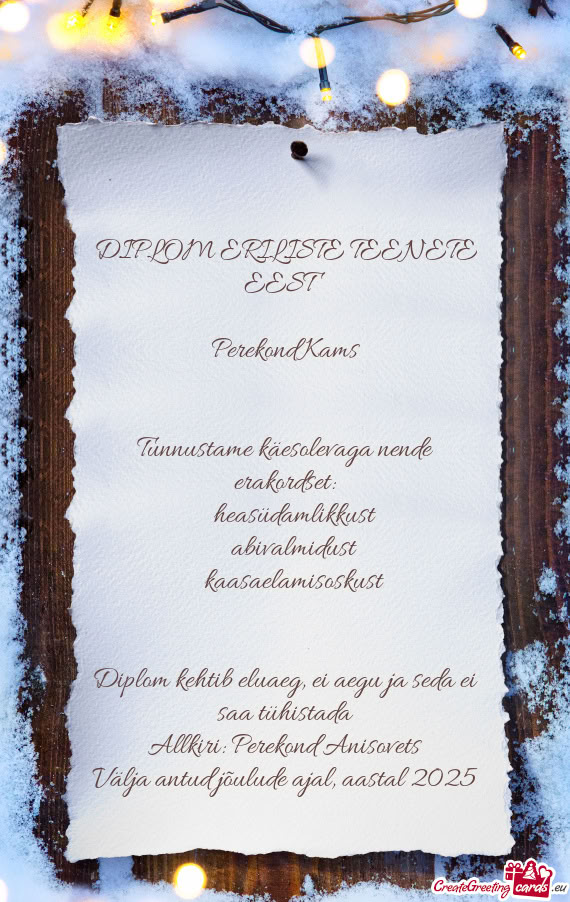 DIPLOM ERILISTE TEENETE
EEST
Perekond Kams
Tunnustame käesolevaga nende
erakordset:
heasüdamlikkust
abivalmidust
kaasaelamisoskust
Diplom kehtib eluaeg, ei aegu ja seda ei
saa tühistada
Allkiri: Perekond Anisovets
Välja antud jõulude ajal, aastal 2025
CreateGreeting cards .eu